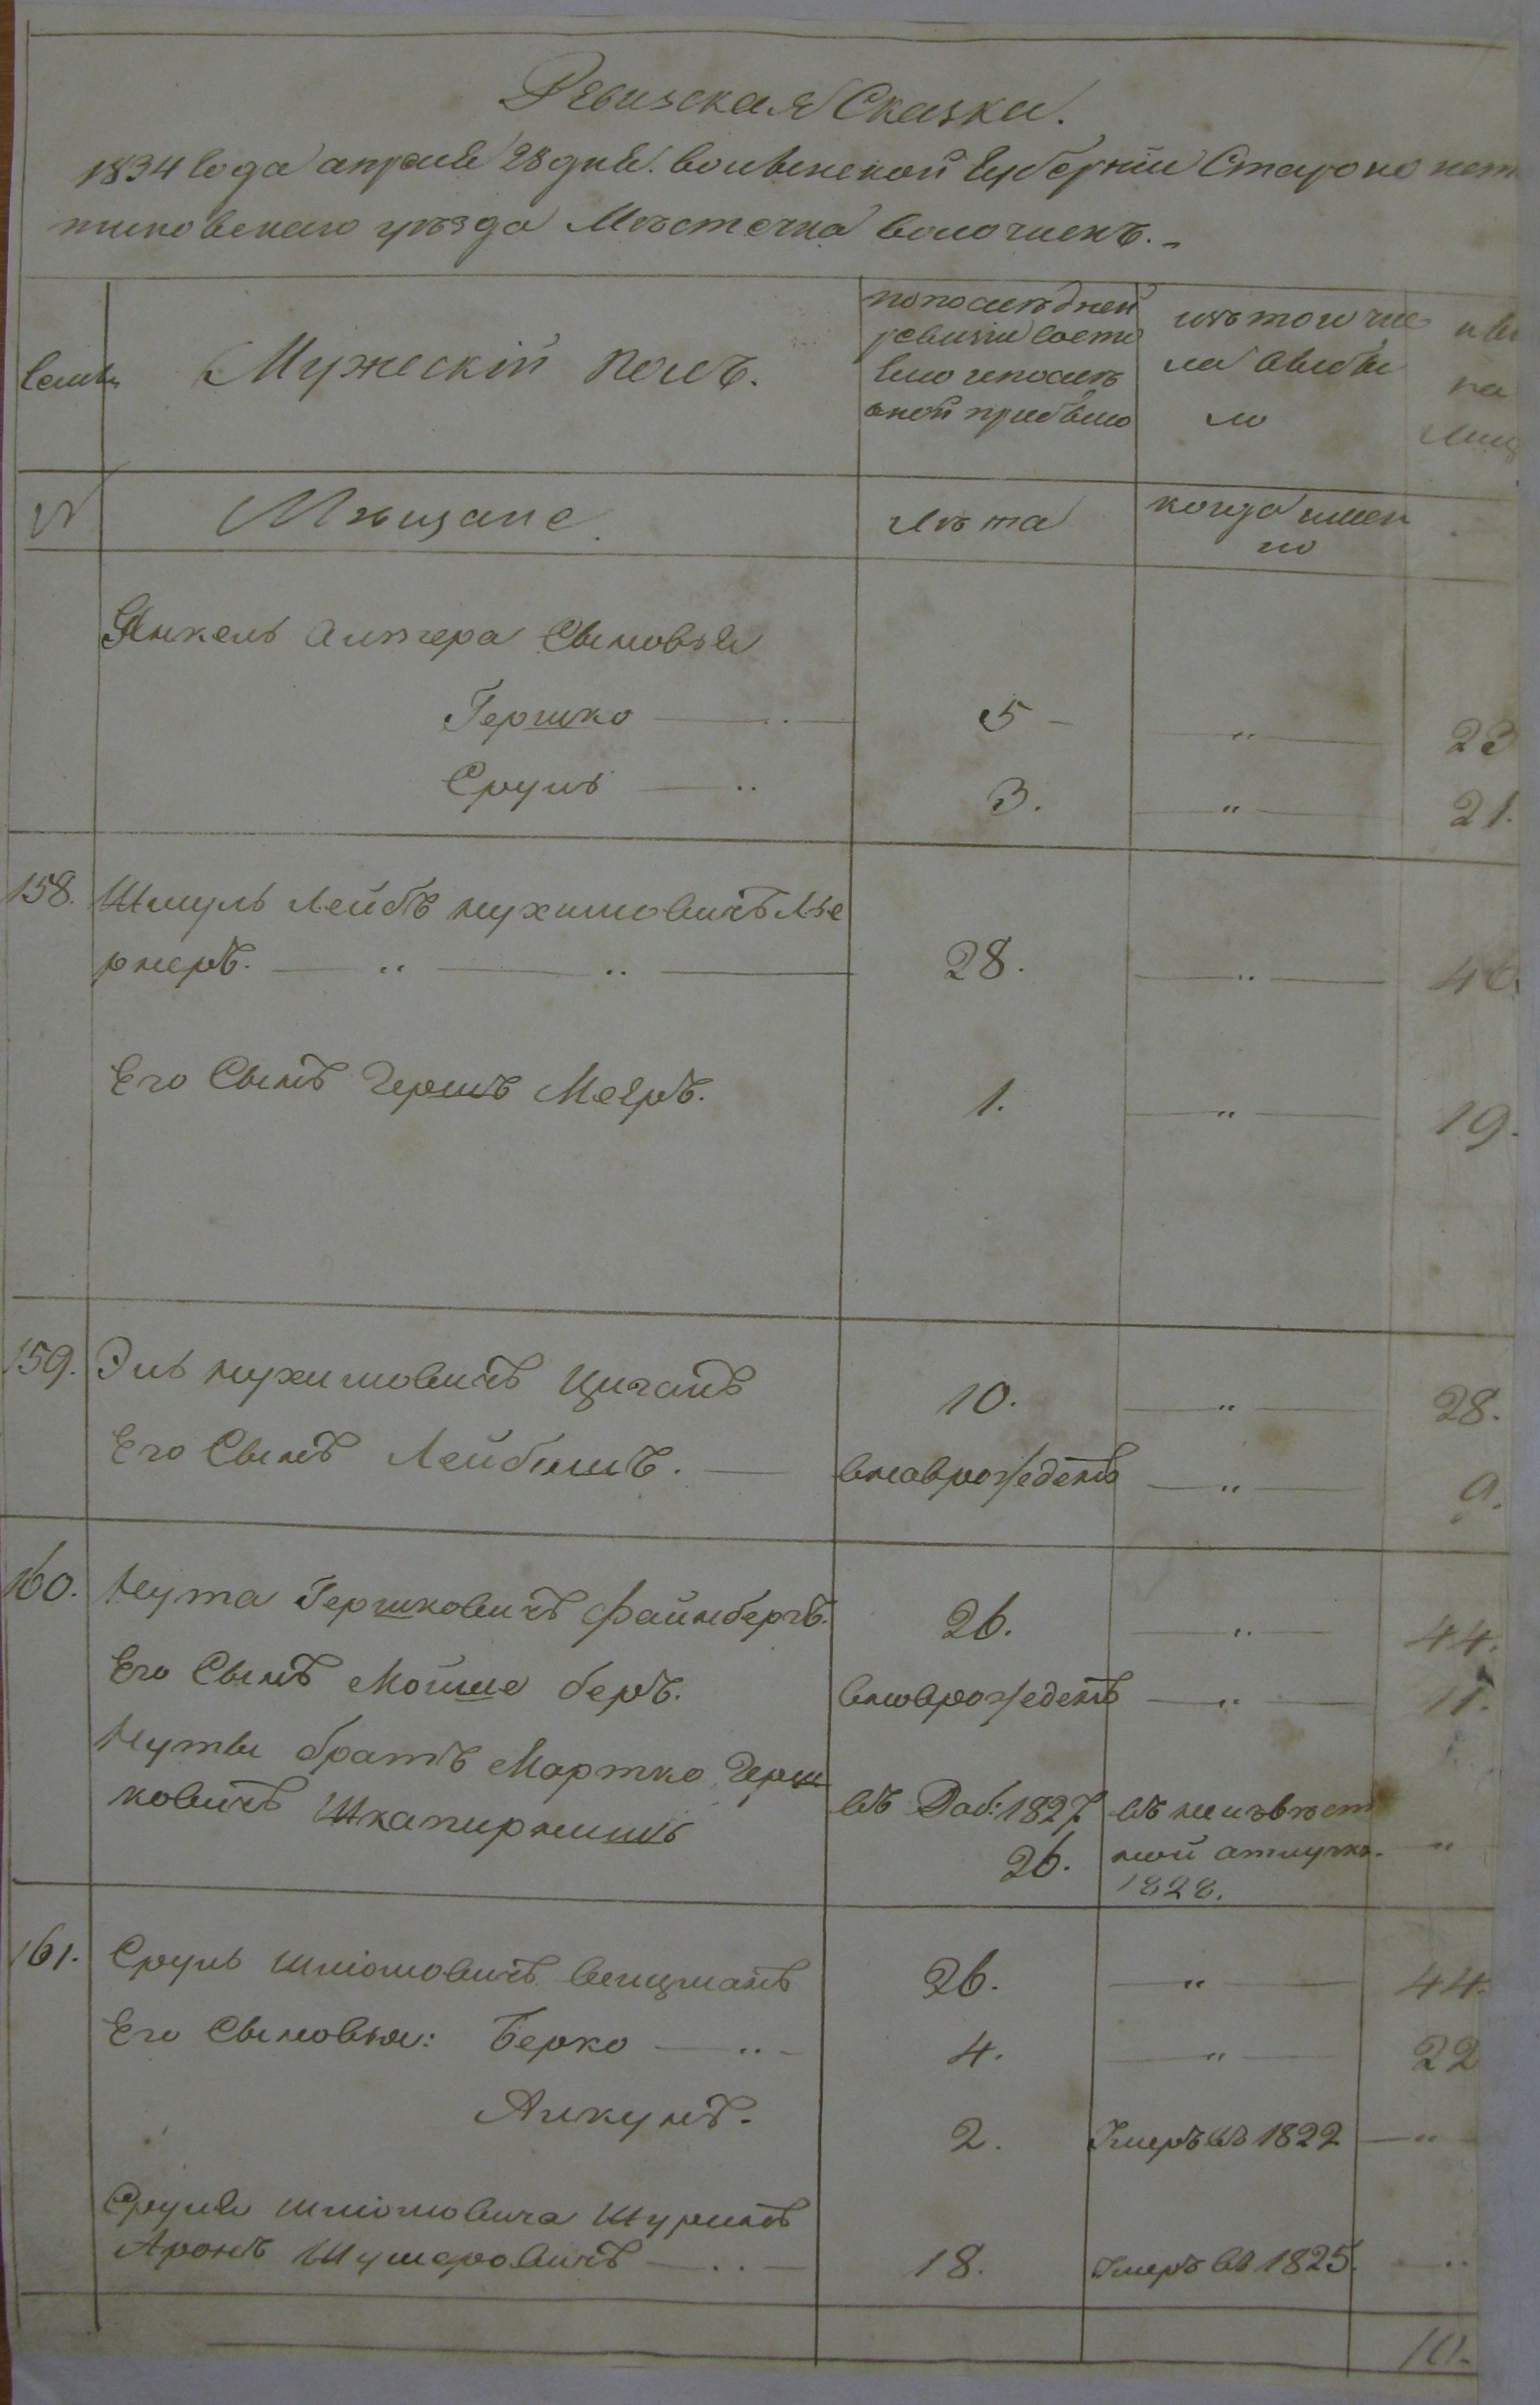 Ревизская Сказка.
1834 года апреля 28 дня. волынской губернии Староконстан
тиновскаго уѣзда Мѣстечка волочискъ.
Семьи
Мужескій полъ.
по послѣдней
ревизіи состо
яло и послѣ
оной прибыло
изъ того чис
ла выбы
ло
ны
на
лиц
№
Мѣщане.
лѣта
когда имен
но
Янкель Сыновья
Гершко 5 — " — 23
Сруль — " 3. — " — 21.
158. Шмуль Лейбъ нухимовичъ Ле
рнеръ. — " — " — 28. — " — 46.
Его Сынъ Гершъ Мееръ. 1. — " — 19.
159. Эль нухимовичъ Циганъ 10. — " — 28.
Его Сынъ Лейбишъ. — вновърожденъ — " — 9.
160. Нута Гершковичъ файнбергъ. 26. — " — 44.
Его Сынъ Мойше беръ. вновърожденъ — " — 11.
Нуты братъ Мортко Герш
ковичъ въ Доб: 1827 въ неизвѣст
26. ной атлучкѣ. "
1828.
161. Сруль шліомовичъ вайцманъ 26. — " — 44.
Его Сыновья: Берко — " — 4. — " — 22
Янкунъ. 2. Умеръ въ 1822 — "
Сруля шліомовича Шуринъ
Аронъ — " — 18. Умеръ въ 1825. "
10.